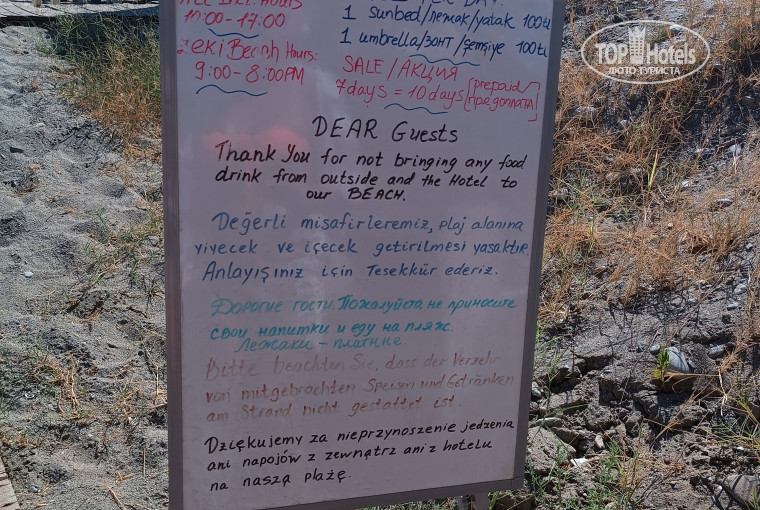 Hours
10:00-17:00
Zeki Beach Hours:
9:00-8:00PM
PER DAY:
1 sunbed/лежак/yatak 100tL
1 umbrella/зонт/şemsiye 100tL
SALE/АКЦИЯ
7days = 10days [prepaid/предоплата]
DEAR Guests
Thank You for not bringing any food
drink from outside and the Hotel to
our BEACH.
Değerli misafirleremiz, plaj alanına
yiyecek ve içecek getirilmesi yasaktır.
Anlayışınız için Tesekkür ederiz.
Дорогие гости. Пожалуйста, не приносите
свои напитки и еду на пляж.
Лежаки - платные.
Bitte beachten Sie, dass der Verzehr
von mitgebrachten Speisen und Getränken
am Strand nicht gestattet ist.
Dziękujemy za nieprzynoszenie jedzenia
ani napojów z zewnątrz ani z hotelu
na naszą plażę.
TOP Hotels
ФОТО ТУРИСТА